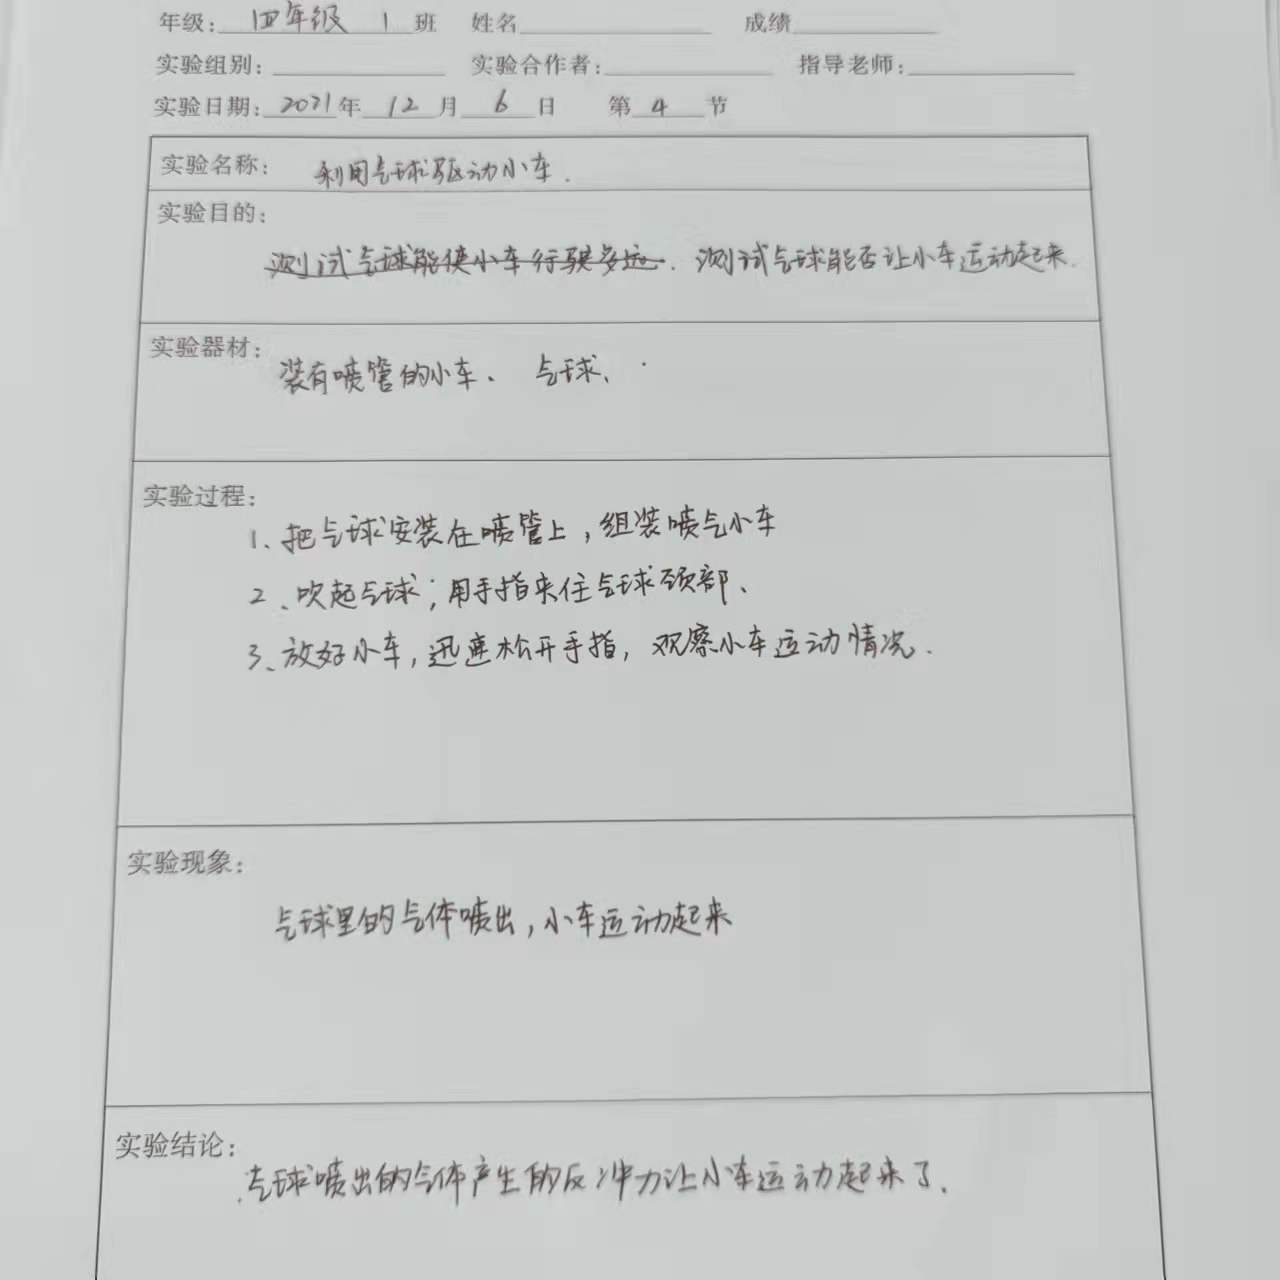 年级：四年级 1 班 姓名 成绩
实验组别： 实验合作者： 指导老师：
实验日期：2021年 12 月 6 日 第 4 节
实验名称： 利用气球驱动小车.
实验目的：
测试气球能使小车行驶多远. 测试气球能否让小车运动起来.
实验器材：
装有喷管的小车、 气球、
实验过程：
1、把气球安装在喷管上，组装喷气小车
2、吹起气球；用手指夹住气球颈部、
3、放好小车，迅速松开手指，观察小车运动情况.
实验现象：
气球里的气体喷出，小车运动起来
实验结论：
气球喷出的气体产生的反冲力让小车运动起来了.